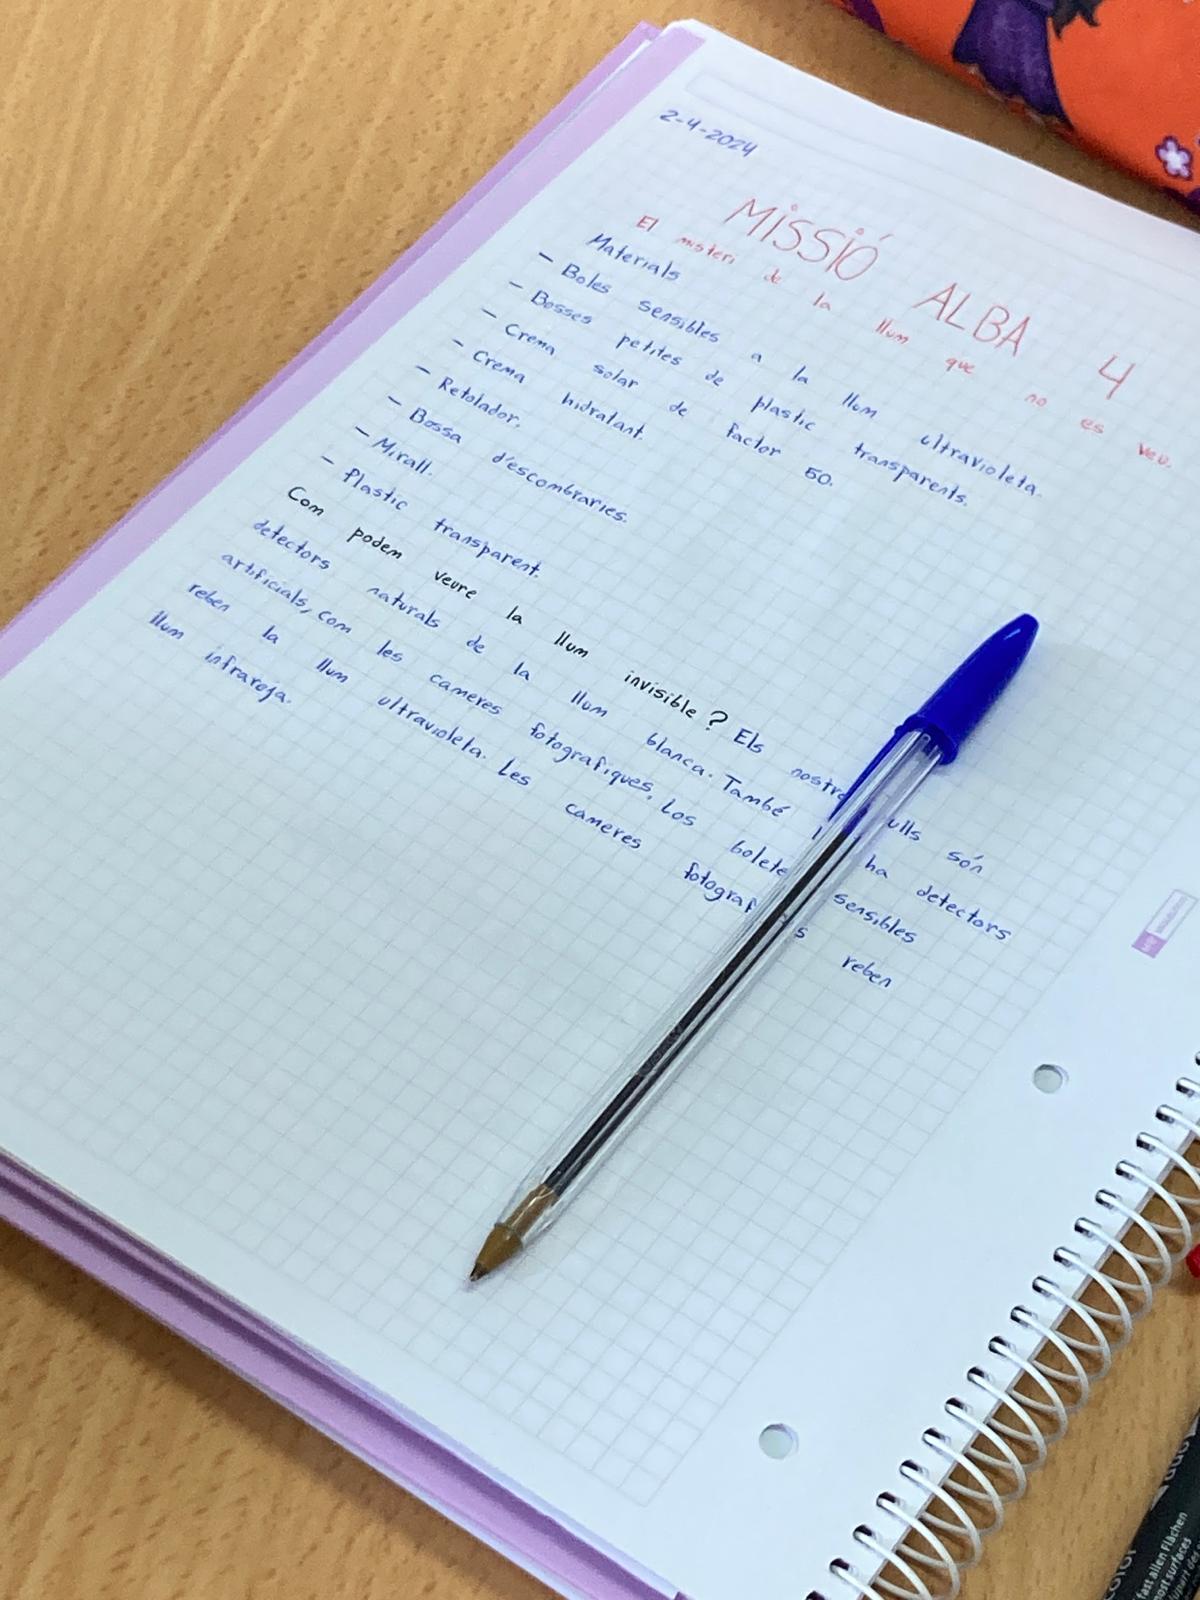 2-4-2024
MISSIÓ ALBA 4
El misteri de la llum que no es veu.
Materials
- Boles sensibles a la llum ultravioleta.
- Bosses petites de plastic transparents.
- Crema solar de factor 50.
- Crema hidratant.
- Retolador.
- Bossa d'escombraries.
- Mirall.
- Plastic transparent.
Com podem veure la llum invisible? Els ulls són
detectors naturals de la llum blanca. També ha detectors
artificials, com les cameres fotografiques. Los sensibles
reben la llum ultravioleta. Les cameres reben
llum infraroja.
fast allen Flächen
most surfaces